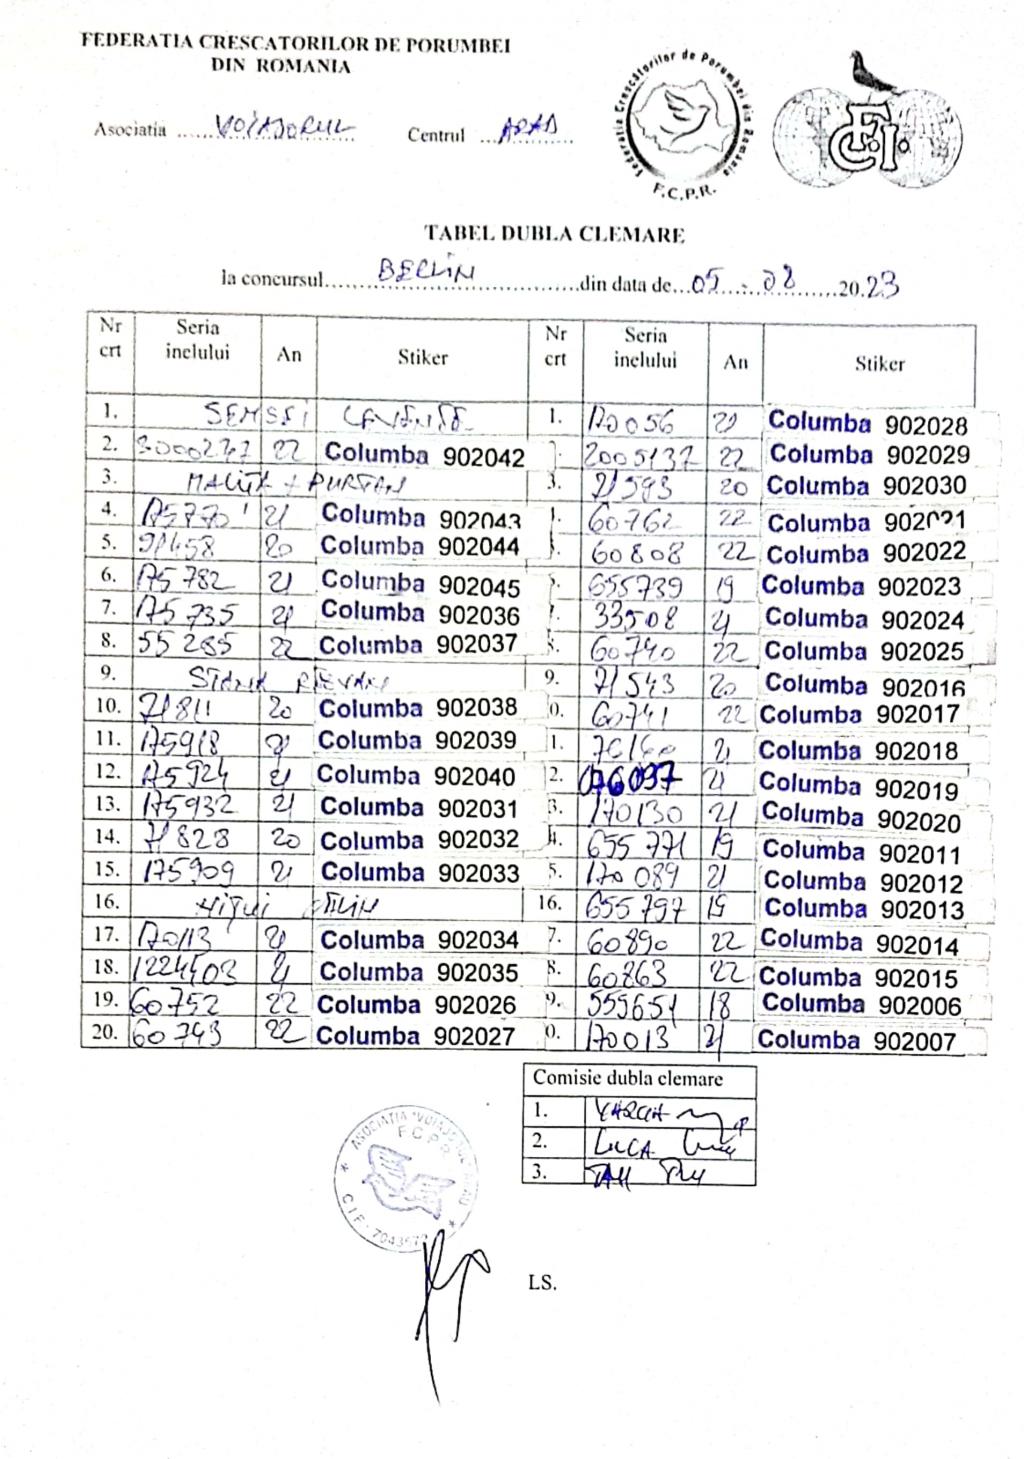 FEDERATIA CRESCATORILOR DE PORUMBEI
DIN ROMANIA
Asociatia ......VOIAJORUL Centrul ...ARAD
Federatia Crescătorilor de Porumbei din România
F.C.P.R.
FCI
TABEL DUBLA CLEMARE
la concursul.....BERLIN.....din data de...05 - 08......20.23
Nr crt Seria inelului An Stiker Nr crt Seria inelului An Stiker
1. 1. 170056 21 Columba 902028
2. 3000247 22 Columba 902042 2005137 22 Columba 902029
3. 3. 71593 20 Columba 902030
4. 175770 21 Columba 902043 60762 22 Columba 902021
5. 91458 20 Columba 902044 60808 22 Columba 902022
6. 175782 21 Columba 902045 655739 19 Columba 902023
7. 175735 21 Columba 902036 33508 21 Columba 902024
8. 55285 22 Columba 902037 60740 22 Columba 902025
9. 9. 71543 20 Columba 902016
10. 71811 20 Columba 902038 0. 60741 22 Columba 902017
11. 175918 21 Columba 902039 1. 21 Columba 902018
12. 175924 21 Columba 902040 2. 076037 21 Columba 902019
13. 175932 21 Columba 902031 3. 170130 21 Columba 902020
14. 71828 20 Columba 902032 4. 655771 19 Columba 902011
15. 175909 21 Columba 902033 5. 170089 21 Columba 902012
16. 16. 655797 19 Columba 902013
17. 170113 21 Columba 902034 7. 60890 22 Columba 902014
18. 21 Columba 902035 8. 60863 22 Columba 902015
19. 60752 22 Columba 902026 9. 555651 18 Columba 902006
20. 60743 22 Columba 902027 0. 170013 21 Columba 902007
Comisie dubla clemare
1.
2. LUCA
3.
ASOCIATIA "VOIAJORUL" ARAD
F.C.P.R.
LS.